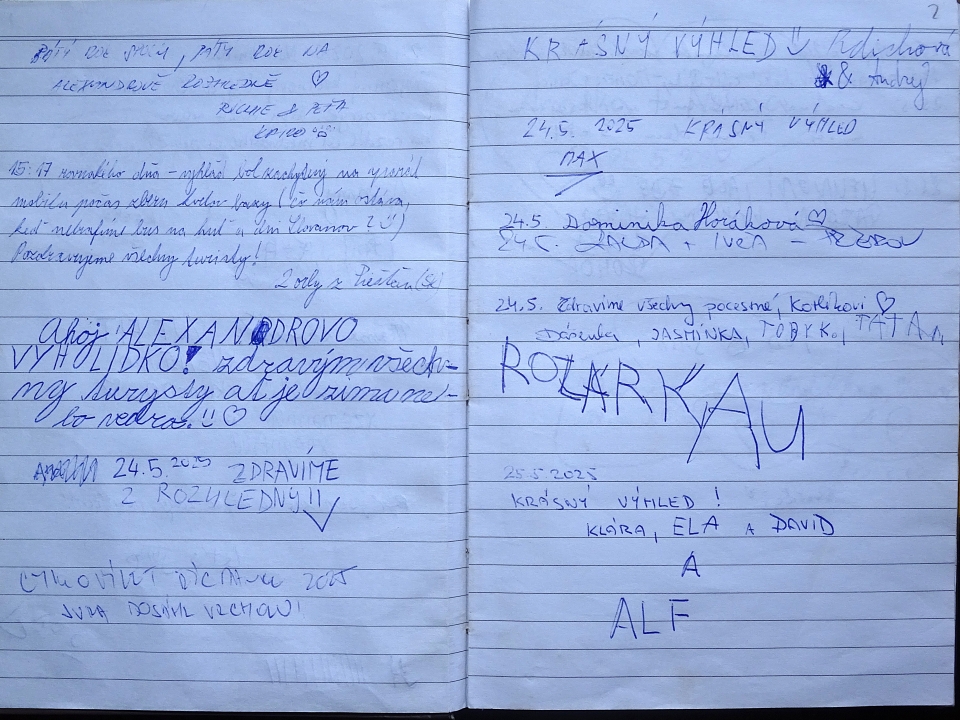 PÁTÝ ROK SPOLU, PÁTÝ ROK NA
ALEXANDROVĚ ROZHLEDNĚ ♡
RICHIE & PEŤA
15:17 rovnakého dňa – výhľad bol na
mobilu počas zberu bodov
keď netrafíme bus na huť a dni Slovanov ? )
Pozdravujeme všechny turisty!
2 orly z Piešťan (SK)
Ahoj ALEXANDROVO
VYHOLIDKO! zdravým všech-
ny turysty ať je zima ne-
bo vedro. ♡
24.5.2025 ZDRAVÍME
Z ROZHLEDNY!!
2025
JURA DOSÁHL VRCHOLU
2
KRÁSNÝ VÝHLED
& Andrej
24.5. 2025 KRÁSNÝ VÝHLED
MAX
24.5. Dominika Horáková ♡
24.5. + IVČA –
24.5. Zdravíme všechny pocestné, Kotlíkovi ♡
JASMÍNKA, TOBYK, TÁTA
25.5.2025
KRÁSNÝ VÝHLED!
KLÁRA, ELA A DAVID
A
ALF